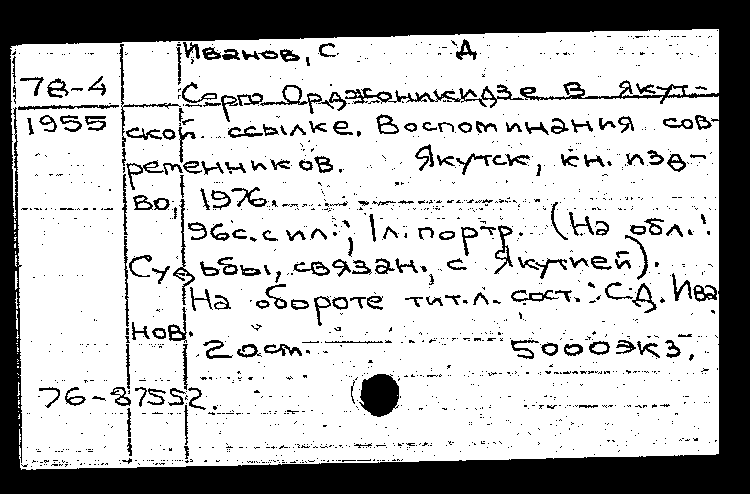 Иванов, С Д
78-4 Серго Орджоникидзе в якут-
1955 ской ссылке. Воспоминания сов-
ременников. Якутск, кн. изд-
во, 1976.
96с. с ил.; 1л. портр. (На обл.:
Судьбы, связан. с Якутией).
На обороте тит.л. сост.: С.Д. Ива
нов.
20 ст. 5000 экз.
76-37552.